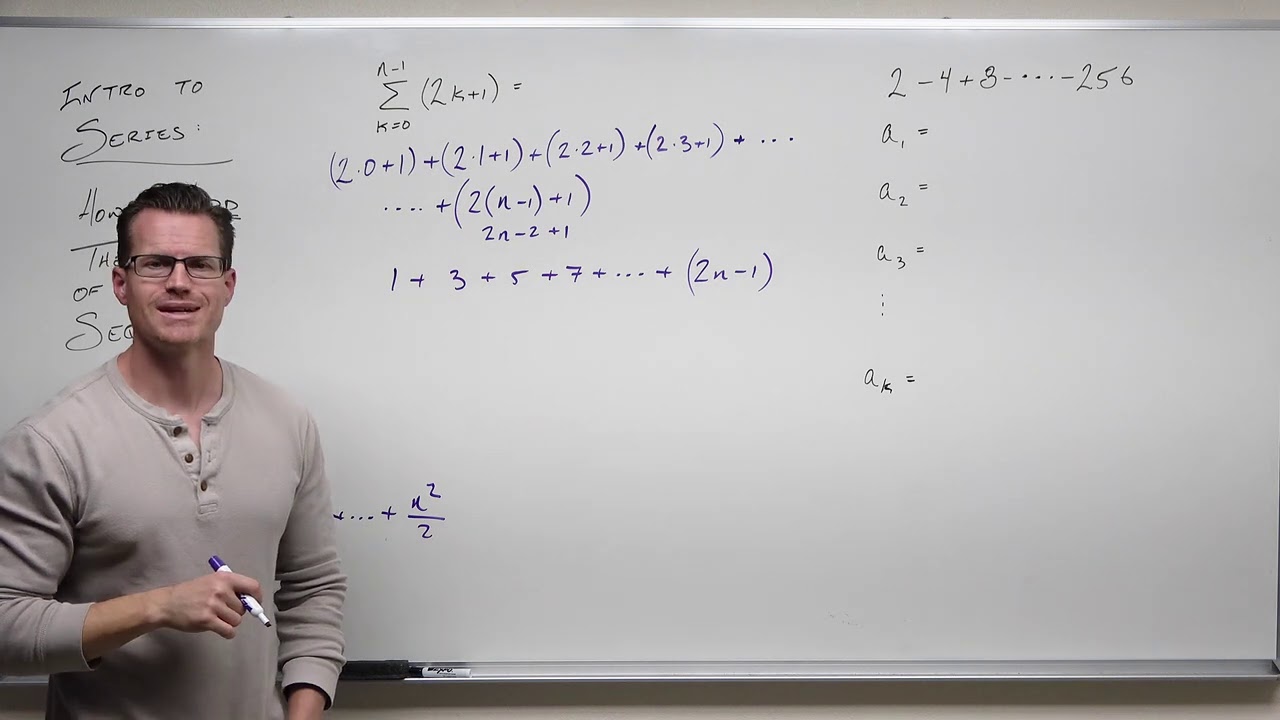 INTRO TO
SERIES:
How
THE
OF
SEQ
n-1
∑ (2k+1) =
k=0
(2·0+1) + (2·1+1) + (2·2+1) + (2·3+1) + ....
.... + (2(n-1)+1)
2n-2+1
1 + 3 + 5 + 7 + ... + (2n-1)
+ ... + n²/2
2 - 4 + 8 - .... - 256
a₁ =
a₂ =
a₃ =
⋮
aₖ =